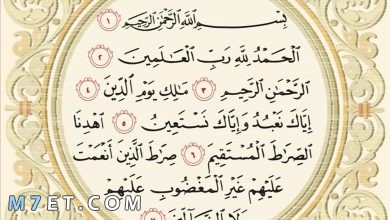 بِسْمِ اللَّهِ الرَّحْمَٰنِ الرَّحِيمِ ١
الْحَمْدُ لِلَّهِ رَبِّ الْعَالَمِينَ ٢
الرَّحْمَٰنِ الرَّحِيمِ ٣ مَالِكِ يَوْمِ الدِّينِ ٤
إِيَّاكَ نَعْبُدُ وَإِيَّاكَ نَسْتَعِينُ ٥ اهْدِنَا
الصِّرَاطَ الْمُسْتَقِيمَ ٦ صِرَاطَ الَّذِينَ أَنْعَمْتَ
عَلَيْهِمْ غَيْرِ الْمَغْضُوبِ عَلَيْهِمْ
وَلَا الضَّالِّينَ
M7ET.COM